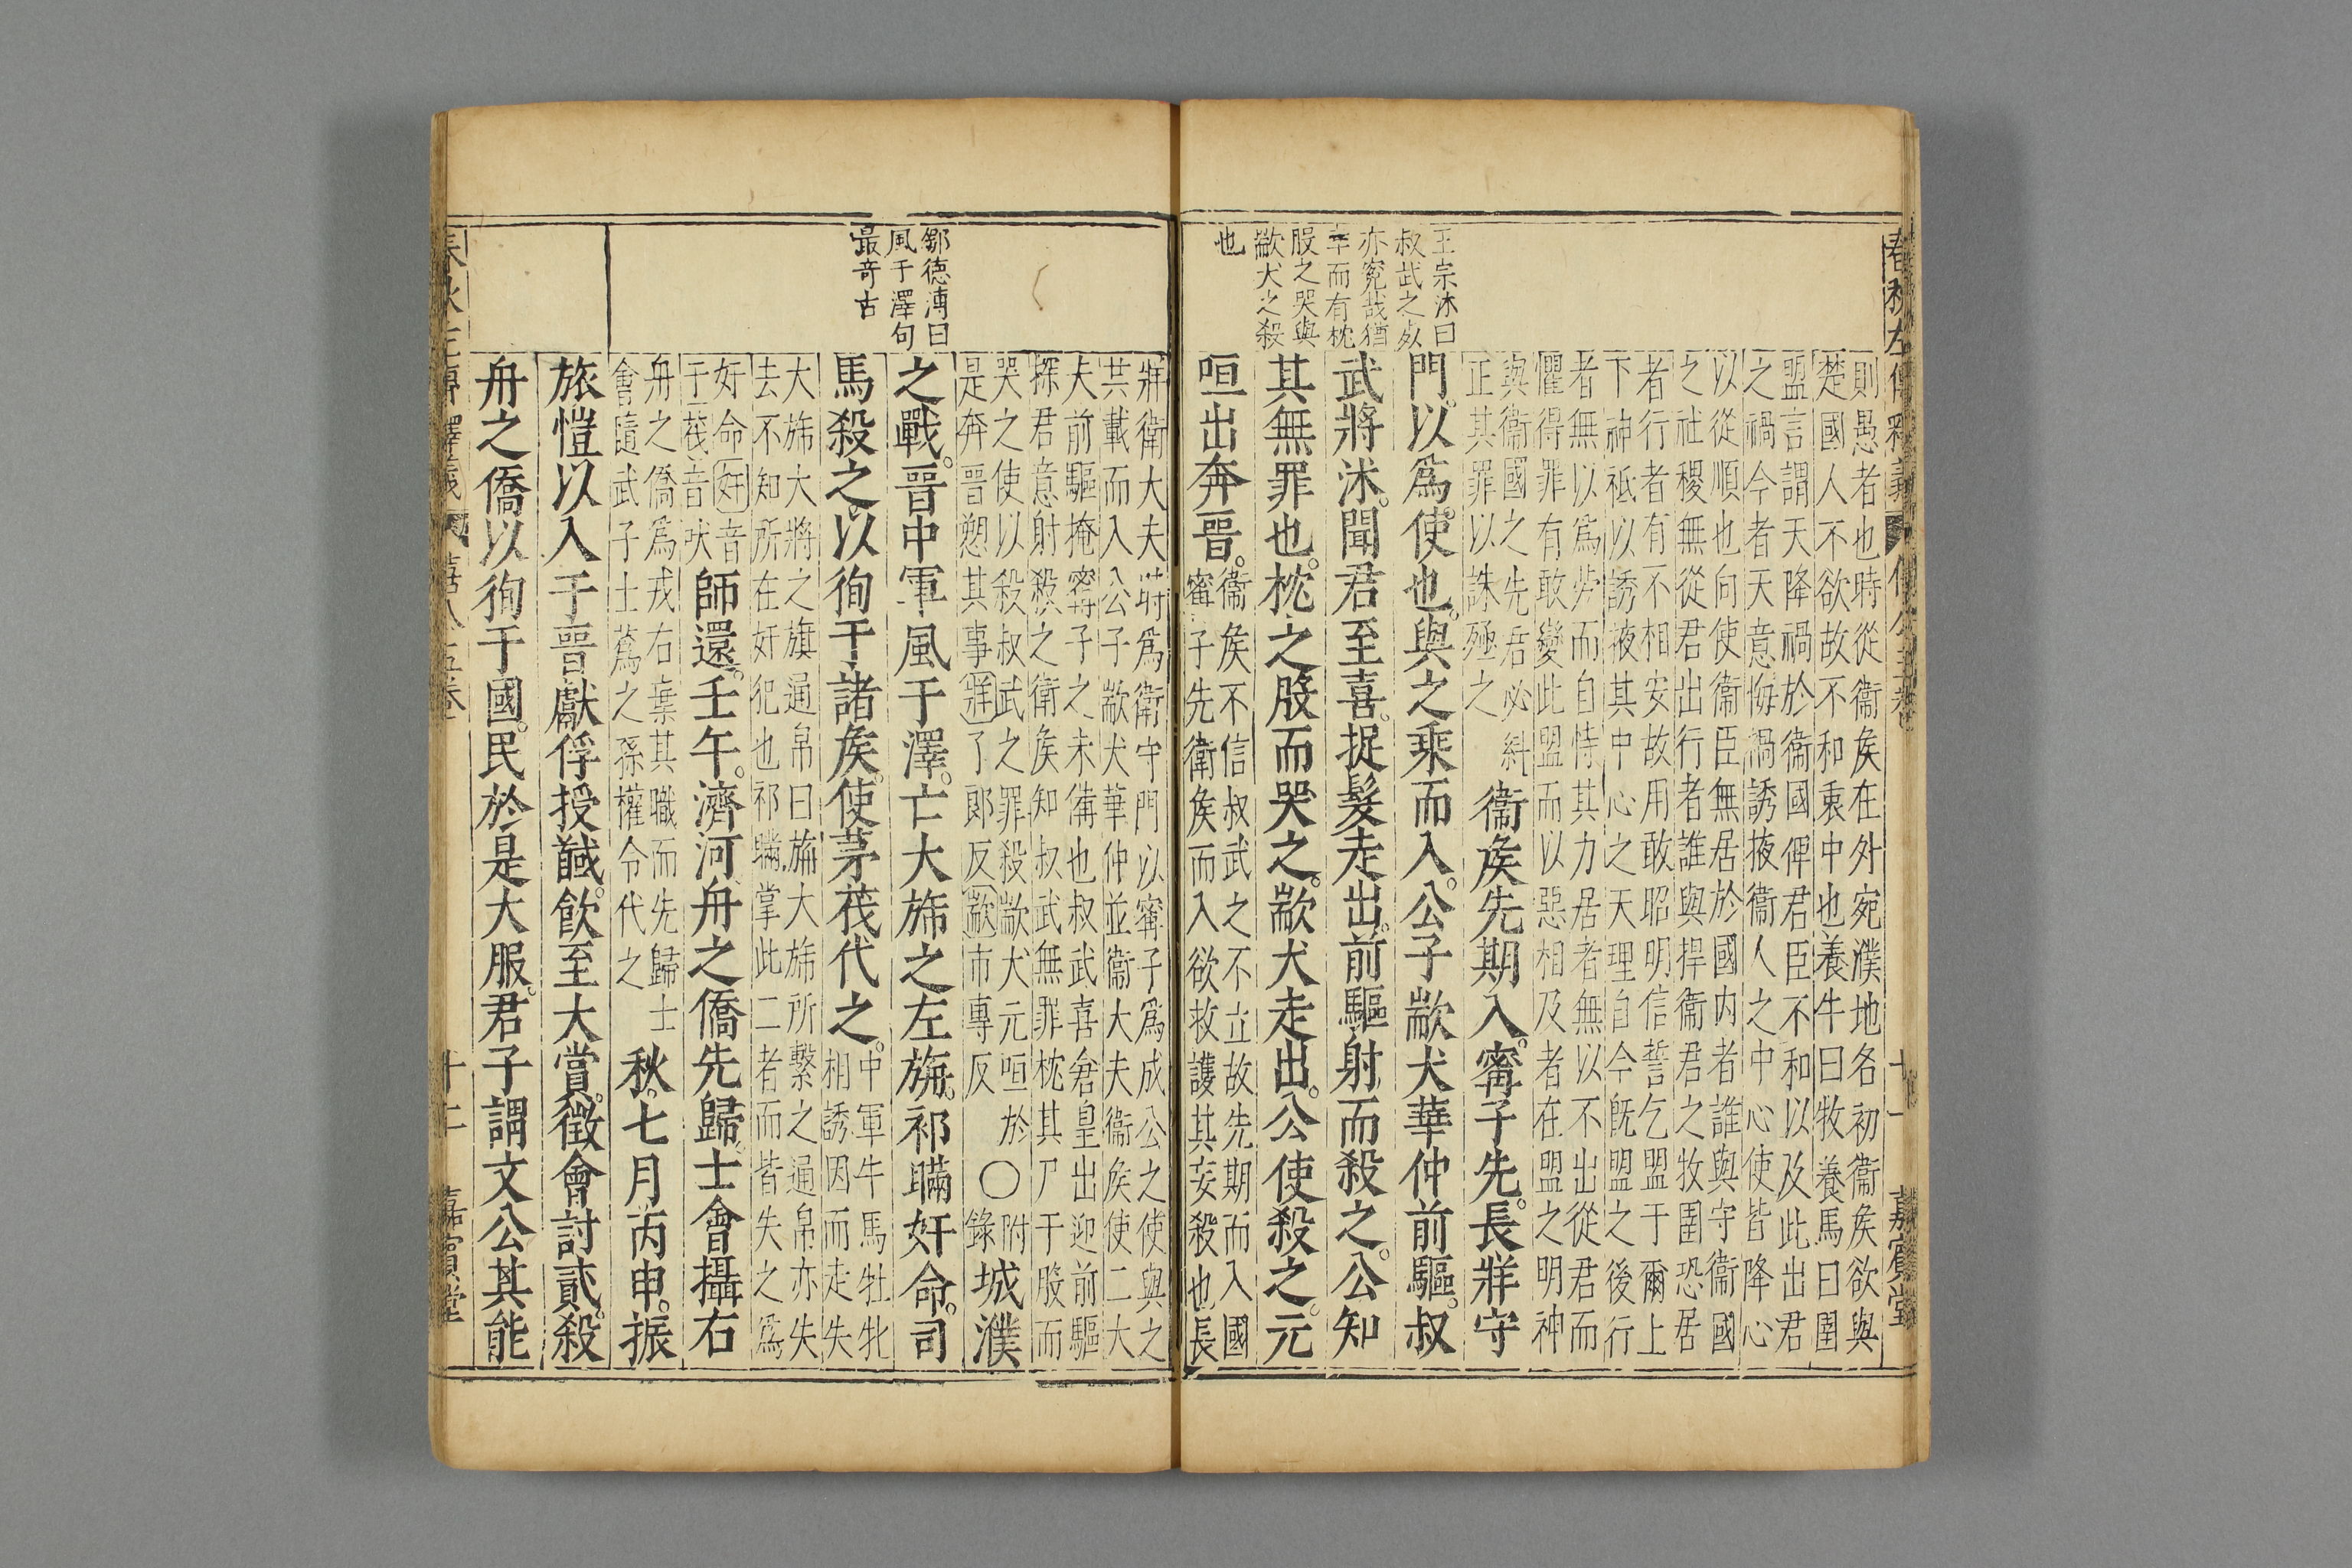 春秋左傳釋義
僖公五卷
十一
嘉賓堂
王宗沐曰
叔武之死
亦寃哉猶
幸而有枕
股之哭與
歂犬之殺
也
則愚者也時從衞矦在外宛濮地名初衞矦欲與
楚國人不欲故不和衷中也養牛曰牧養馬曰圉
盟言謂天降禍於衞國俾君臣不和以及此出君
之禍今者天意悔禍誘掖衞人之中心使皆降心
以從順也向使衞臣無居於國内者誰與守衞國
之社稷無從君出行者誰與捍衞君之牧圉恐居
者行者有不相安故用敢昭明信誓乞盟于爾上
下神祗以誘掖其中心之天理自今旣盟之後行
者無以爲勞而自恃其力居者無以不出從君而
懼得罪有敢變此盟而以惡相及者在盟之明神
與衞國之先君必糾
正其罪以誅殛之
衞矦先期入。甯子先。長牂守
門。以爲使也。與之乘而入。公子歂犬華仲前驅。叔
武將沐。聞君至喜。捉髮走出。前驅射而殺之。公知
其無罪也。枕之股而哭之。歂犬走出。公使殺之。元
咺出奔晉。
衞矦不信叔武之不立故先期而入國
甯子先衛矦而入欲救護其妄殺也長
鄒德溥曰
風于澤句
最竒古
牂衛大夫時爲衛守門以甯子爲成公之使與之
共載而入公子歂犬華仲並衞大夫衞矦使二大
夫前驅掩甯子之未備也叔武喜君皇出迎前驅
探君意射殺之衛矦知叔武無罪枕其尸于股而
哭之使以殺叔武之罪殺歂犬元咺於
是奔晋愬其事牂子郎反歂市專反
○
附
錄
城濮
之戰。晉中軍風于澤。亡大斾之左旃。祁瞞奸命。司
馬殺之。以徇于諸矦。使茅茷代之。
中軍牛馬牡牝
相誘因而走失
大斾大將之旗通帛曰旃大斾所繫之通帛亦失
去不知所在奸犯也祁瞞掌此二者而皆失之爲
奸命奸音
干茷音吠
師還。壬午。濟河。舟之僑先歸。士會攝右
舟之僑爲戎右棄其職而先歸士
會隨武子士蔿之孫權令代之
秋。七月。丙申。振
旅愷以入于晉。獻俘授馘。飲至大賞。徵會討貳。殺
舟之僑以徇于國。民於是大服。君子謂文公其能
十二
嘉賓堂